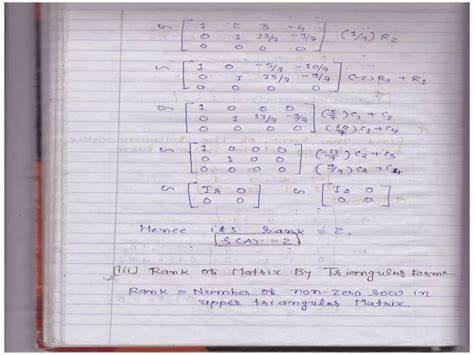 ~ [ 1 2 3 -4
0 1 13/7 -9/7
0 0 0 0 ] (1/7) R2
~ [ 1 0 -5/7 -10/7
0 1 13/7 -9/7
0 0 0 0 ] (-2) R2 + R1
~ [ 1 0 0 0
0 1 13/7 -9/7
0 0 0 0 ] (5/7) c1 + c3
(10/7) c1 + c4
~ [ 1 0 0 0
0 1 0 0
0 0 0 0 ] (-13/7) c2 + c3
(9/7) c2 + c4
~ [ I2 0
0 0 ] ~ [ I2 0
0 0 ]
Hence its rank = 2.
ρ(A) = 2
[iii] Rank of Matrix By Triangular Form
Rank = Number of non-zero row in
upper triangular Matrix.